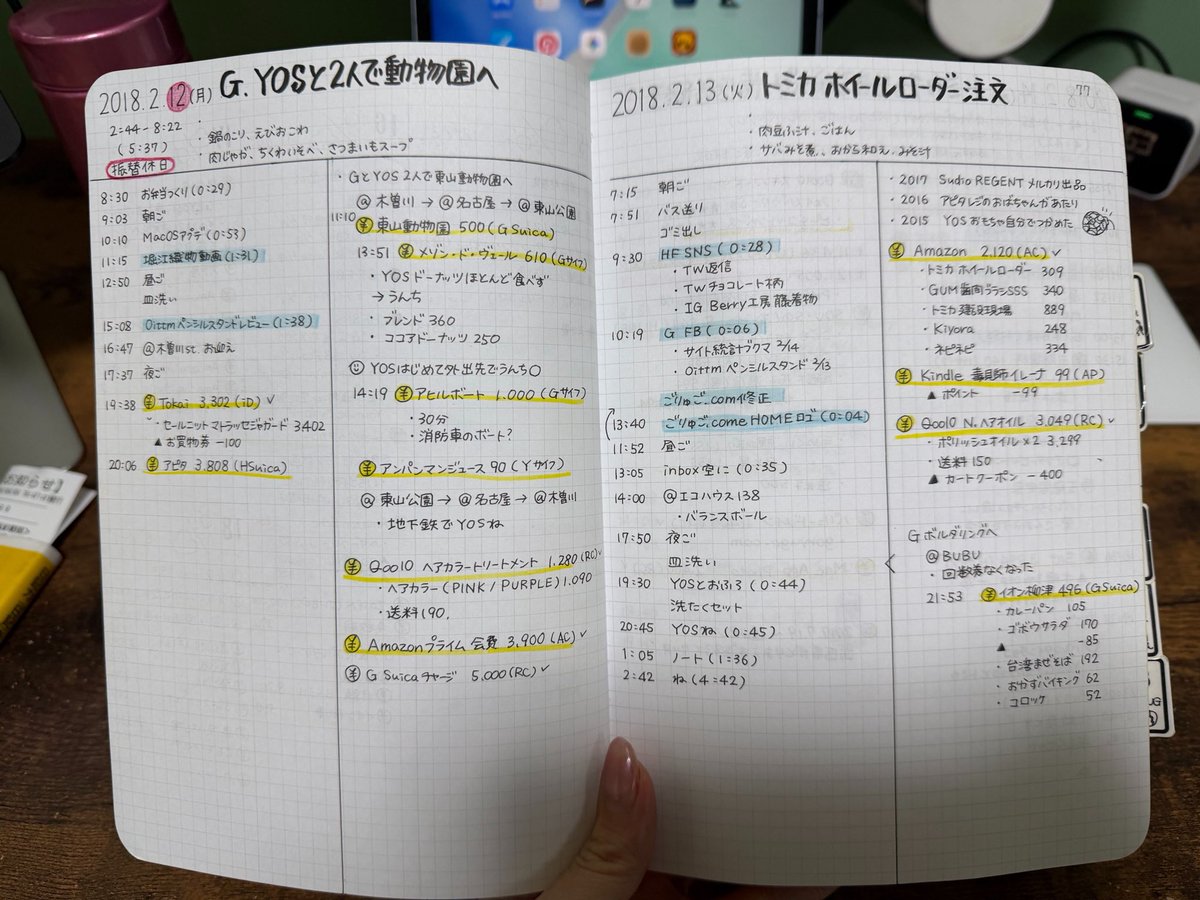 2018.2.12(月) G.YOSと2人で動物園へ
2:44-8:22
(5:37)
振替休日
・鍋のこり、えびおこわ
・肉じゃが、ちくわいそべ、さつまいもスープ
8:30 お弁当づくり(0:29)
9:03 朝ご
10:10 MacOSアプデ(0:53)
11:15 堀江織物動画(1:31)
12:50 昼ご
皿洗い
15:08 Oittmペンシルスタンドレビュー(1:38)
16:47 @木曽川st.お迎え
17:37 夜ご
19:38 ¥Tokai 3,302(iD)✓
・セールニットマトラッセジャガード 3402
▲お買物券 -100
20:06 ¥アピタ 3,808(HSuica)
・GとYOS 2人で東山動物園へ
@木曽川→@名古屋→@東山公園
11:10 ¥東山動物園 500(GSuica)
13:51 ¥メゾン・ド・ヴェール 610(Gサイフ)
・YOSドーナッツほとんど食べず
→うんち
・ブレンド 360
・ココアドーナッツ 250
YOSはじめて外出先でうんち○
14:19 ¥アヒルボート 1,000(Gサイフ)
・30分
・消防車のボート?
¥アンパンマンジュース 90(Yサイフ)
@東山公園→@名古屋→@木曽川
・地下鉄でYOSね
¥Qoo10 ヘアカラートリートメント 1,280(RC)✓
・ヘアカラー(PINK/PURPLE)1,090
・送料190.
¥Amazonプライム会費 3,900(AC)✓
¥G Suicaチャージ 5,000(RC)✓
2018.2.13(火) トミカ ホイールローダー注文
77
・肉豆ふ汁、ごはん
・サバみそ煮、おから和え、みそ汁
7:15 朝ご
7:51 バス送り
ゴミ出し
9:30 HF SNS(0:28)
・TW返信
・TWチョコレート柄
・IG Berry工房着物
10:19 G FB(0:06)
・サイト統計ブクマ 2/14
・Oittmペンシルスタンド 2/13
ごりゅご.com修正
13:40 ごりゅご.come HOMEロゴ(0:04)
11:52 昼ご
13:05 inbox空に(0:35)
14:00 @エコハウス138
・バランスボール
17:50 夜ご
皿洗い
19:30 YOSとおふろ(0:44)
洗たくセット
20:45 YOSね(0:45)
1:05 ノート(1:36)
2:42 ね(4:42)
・2017 Sudio REGENTメルカリ出品
・2016 アピタレジのおばちゃんがあたり
・2015 YOSおもちゃ自分でつかめた
¥Amazon 2,120(AC)✓
・トミカ ホイールローダー 309
・GUM歯間ブラシSSS 340
・トミカ建設現場 889
・Kiyora 248
・ネピネピ 334
¥Kindle 毒見師イレーナ 99(AP)
▲ポイント -99
¥Qoo10 N.ヘアオイル 3,049(RC)✓
・ポリッシュオイル×2 3,299
・送料150
▲カートクーポン -400
Gボルダリングへ
@BUBU
・回数券なくなった
21:53 ¥イオン柳津 496(GSuica)
・カレーパン 105
・ゴボウサラダ 170
▲ -85
・台湾まぜそば 192
・おかずバイキング 62
・コロッケ 52